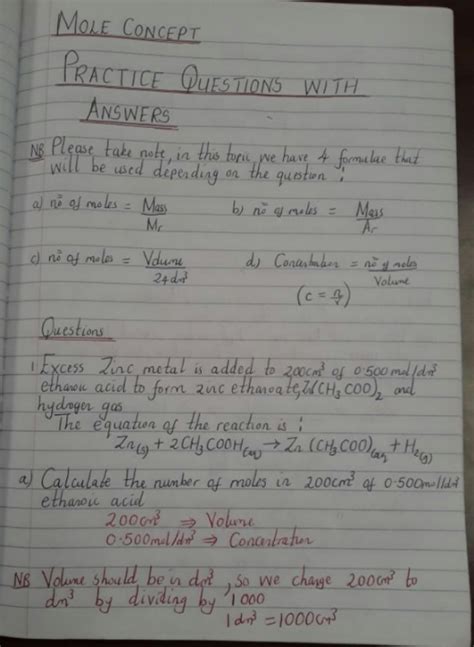 MOLE CONCEPT
PRACTICE QUESTIONS WITH
ANSWERS
NB Please take note, in this topic we have 4 formulae that
will be used depending on the question :
a) no of moles = Mass / Mr
b) no of moles = Mass / Ar
c) no of moles = Volume / 24dm³
d) Concentration = no of moles / Volume
(c = n/v)
Questions
1 Excess Zinc metal is added to 200cm³ of 0.500mol/dm³
ethanoic acid to form zinc ethanoate, Zn(CH₃COO)₂ and
hydrogen gas
The equation of the reaction is :
Zn(s) + 2CH₃COOH(aq) → Zn(CH₃COO)(aq) + H₂(g)
a) Calculate the number of moles in 200cm³ of 0.500mol/dm³
ethanoic acid
200cm³ ⇒ Volume
0.500mol/dm³ ⇒ Concentration
NB Volume should be in dm³, so we change 200cm³ to
dm³ by dividing by 1000
1dm³ = 1000cm³